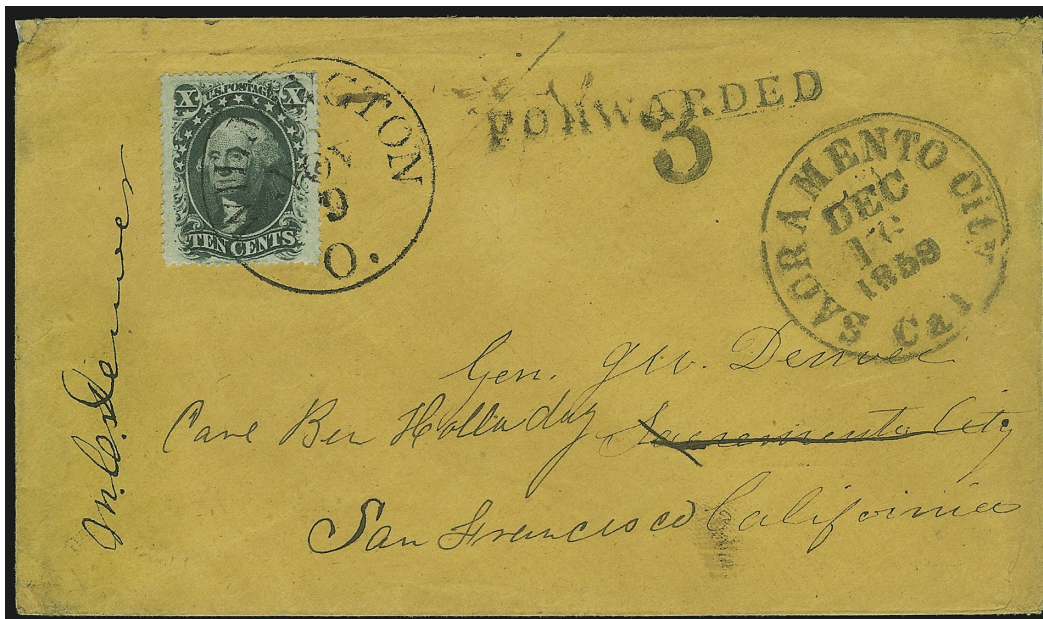 X U.S. POSTAGE X
TEN CENTS
NGTON
9
O.
FORWARDED
3
SACRAMENTO City
DEC
1859
Cal
Gen. J W. Denver
Care Ben Holladay Sacramento City
San Francisco California
M. C. Denver